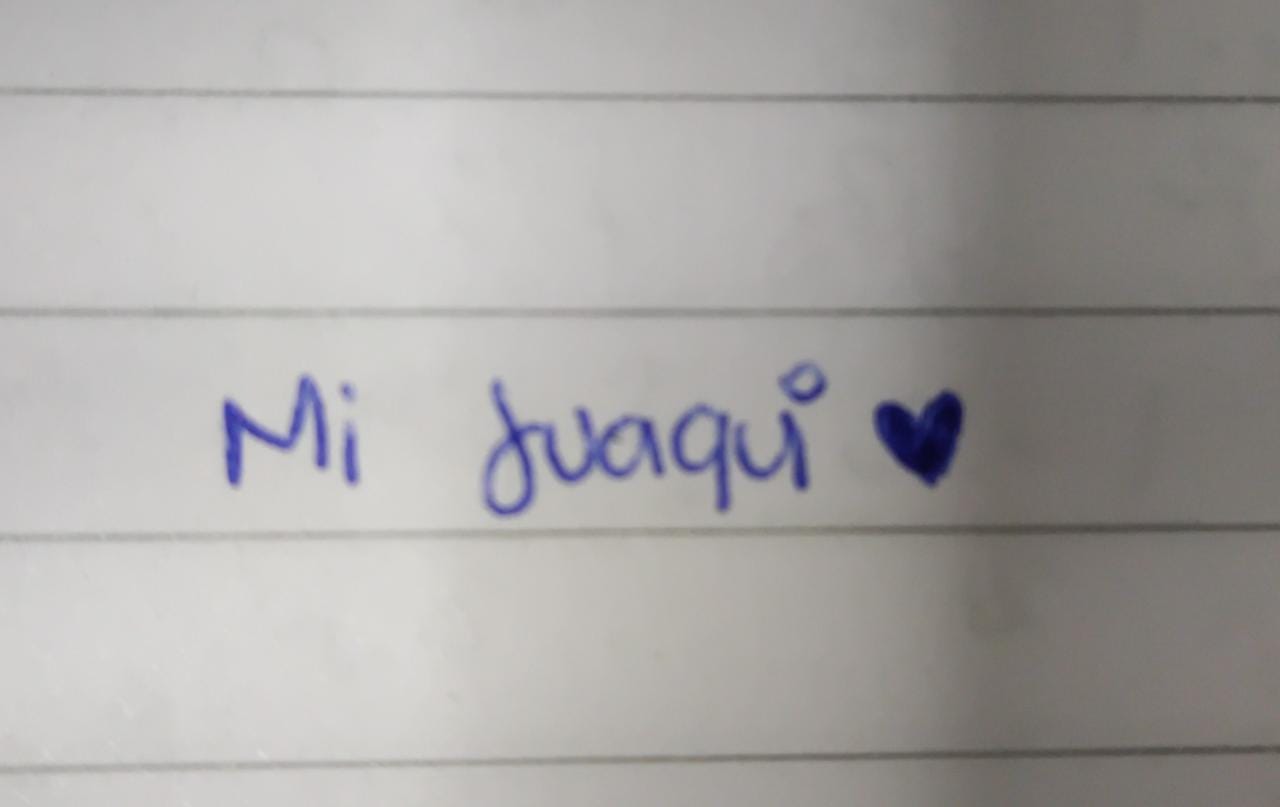 Mi Juaqui ♥